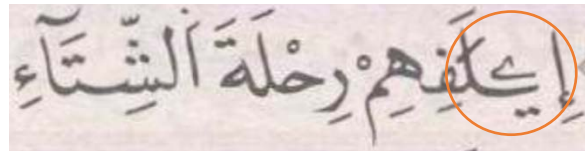 إِۦلَٰفِهِمْ رِحْلَةَ ٱلشِّتَآءِ